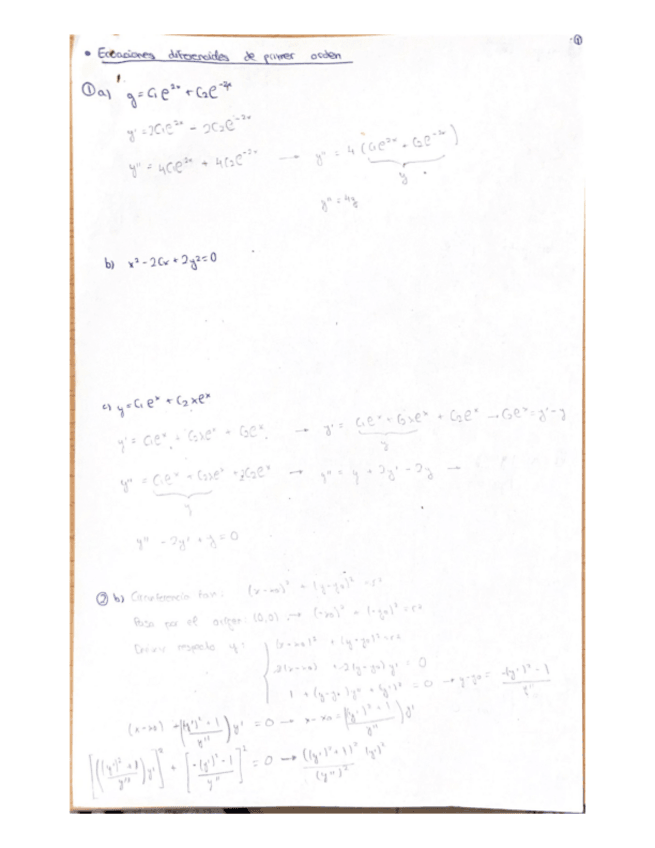 ①
• Ecuaciones diferenciales de primer orden
① a) y = C₁e²ˣ + C₂e⁻²ˣ
y' = 2C₁e²ˣ - 2C₂e⁻²ˣ
y'' = 4C₁e²ˣ + 4C₂e⁻²ˣ → y'' = 4 (C₁e²ˣ + C₂e⁻²ˣ)
y
y'' = 4y
b) x² - 2Cx + 2y² = 0
c) y = C₁eˣ + C₂xeˣ
y' = C₁eˣ + C₂xeˣ + C₂eˣ → y' = C₁eˣ + C₂xeˣ + C₂eˣ → C₂eˣ = y' - y
y
y'' = C₁eˣ + C₂xeˣ + 2C₂eˣ → y'' = y + 2y' - 2y →
y
y'' - 2y' + y = 0
② b) Circunferencia (x-x₀)² + (y-y₀)² = r²
Pasa por el origen: (0,0) → (-x₀)² + (-y₀)² = r²
Derivar respecto (x-x₀)² + (y-y₀)² = r²
2(x-x₀) + 2(y-y₀) y' = 0
1 + (y-y₀)y'' + (y')² = 0 → y-y₀ = -(y')² - 1 / y''
(x-x₀) - ((y')² + 1 / y'') y' = 0 → x-x₀ = ((y')² + 1 / y'') y'
[((y')² + 1 / y'') y']² + [-(y')² - 1 / y'']² = 0 → ((y')² + 1)² (y')² / (y'')²